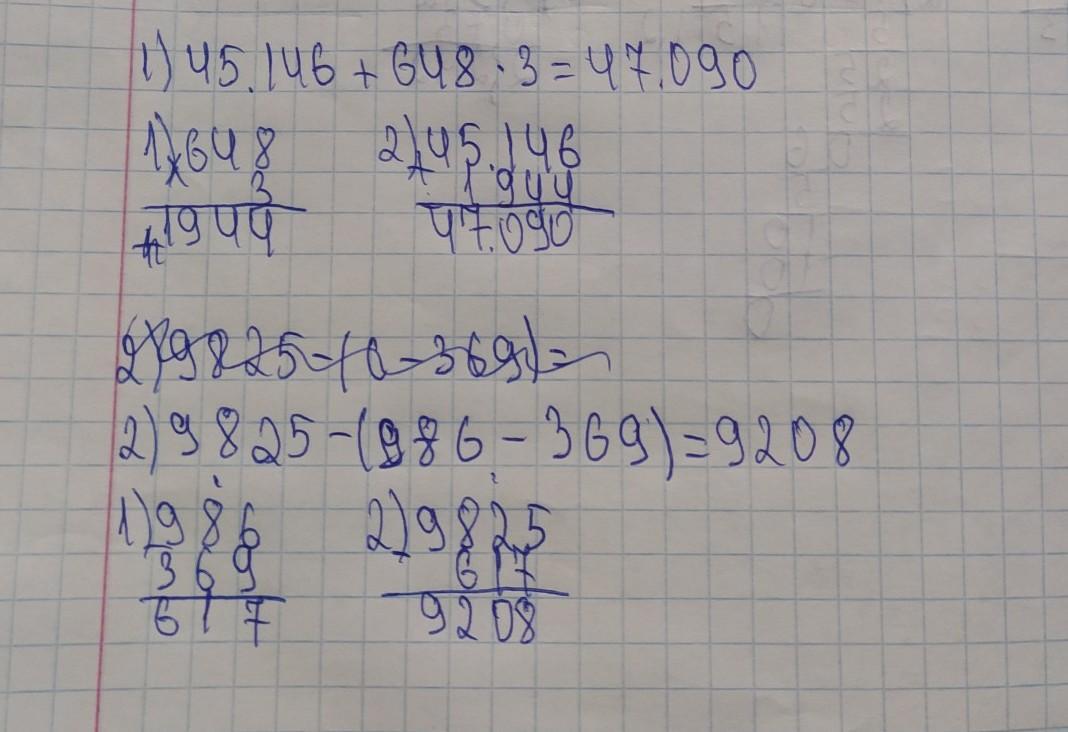 1) 45.146 + 648 · 3 = 47.090
1) x 648 2) + 45.146
3 1 944
1944 47.090
2) 9825 - ( - 369) =
2) 9825 - (986 - 369) = 9208
1) 986 2) - 9825
369 617
617 9208